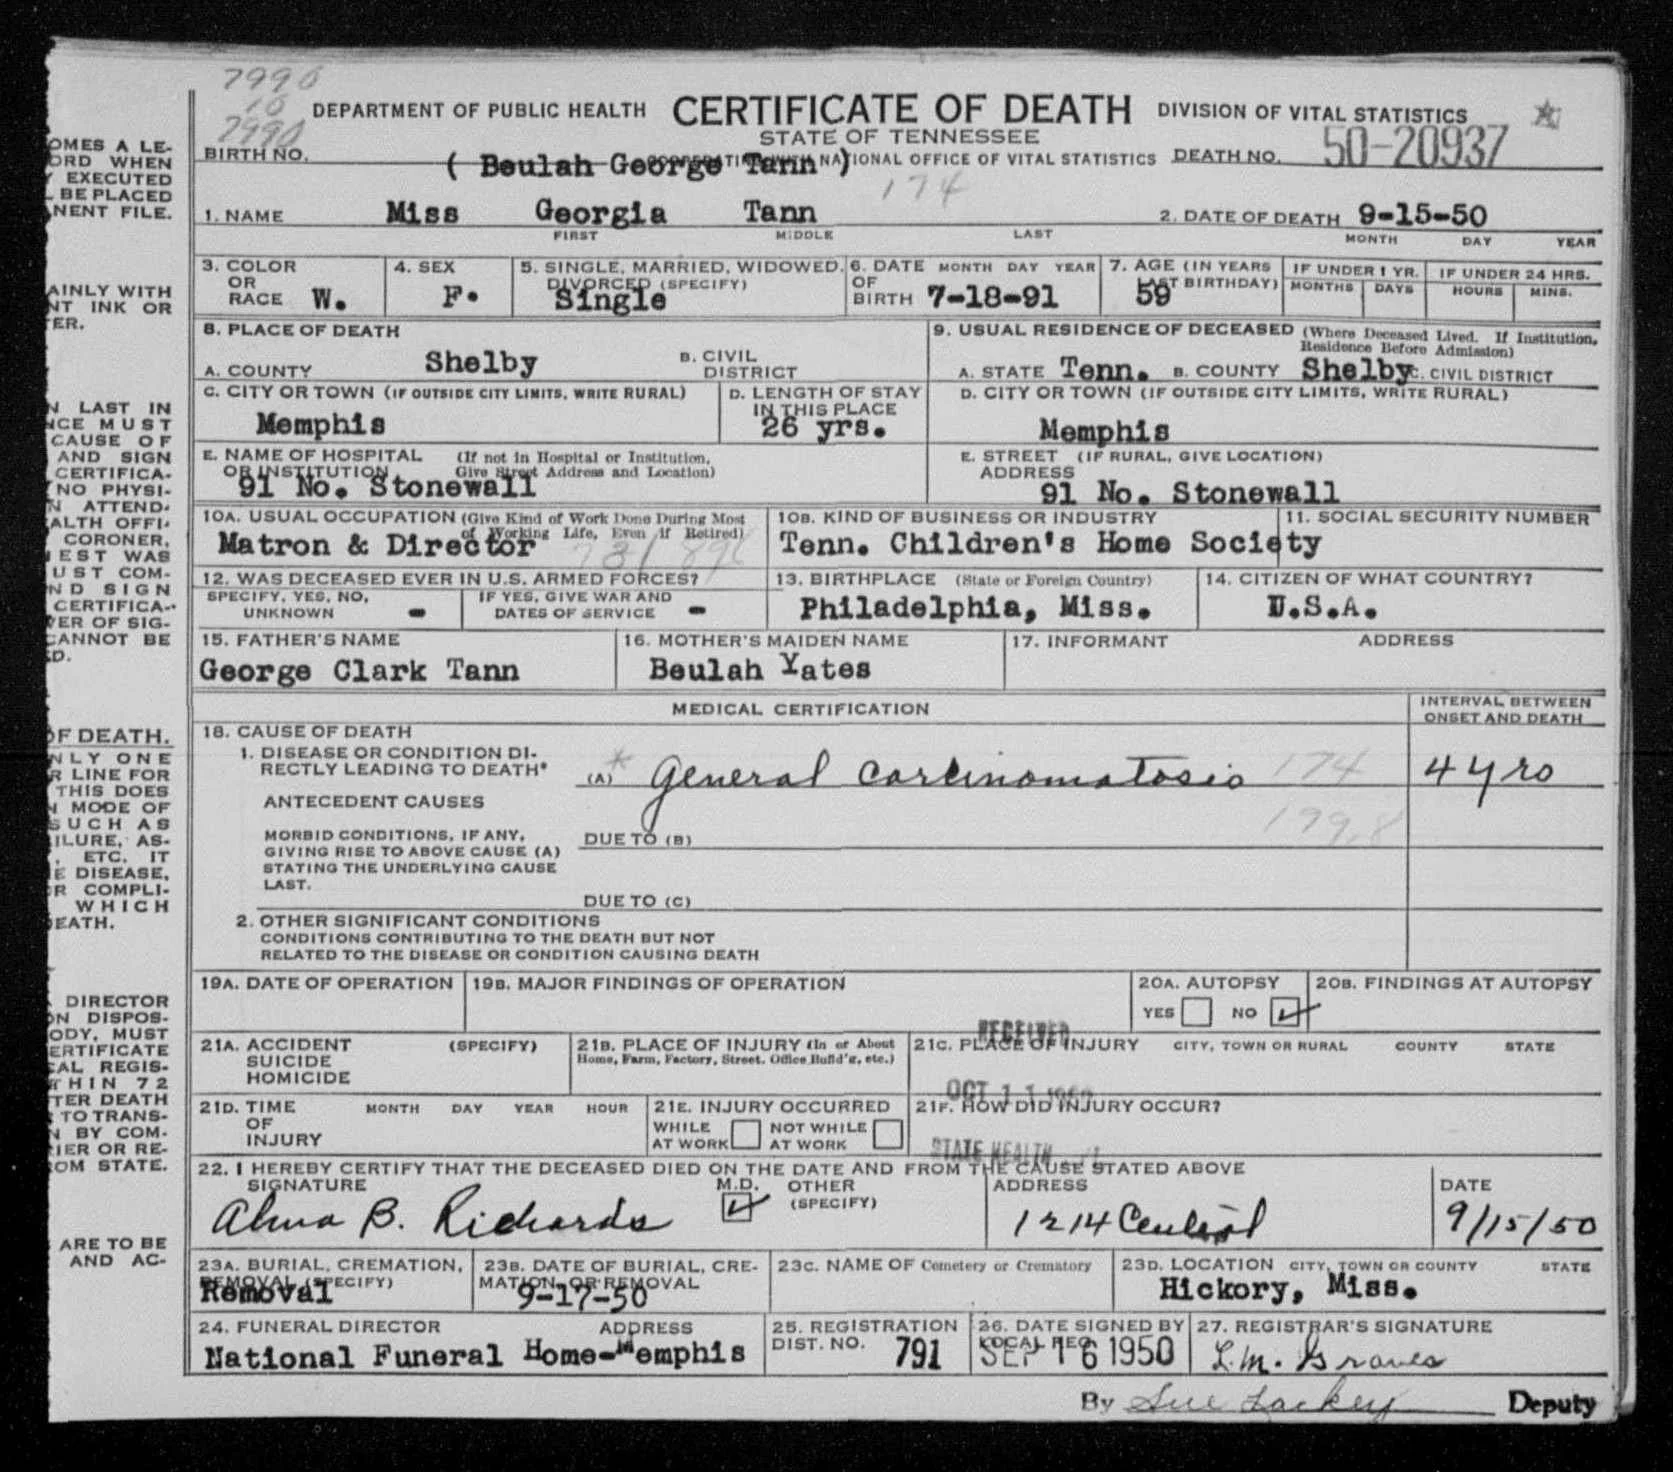 7990
10
7990
DEPARTMENT OF PUBLIC HEALTH CERTIFICATE OF DEATH DIVISION OF VITAL STATISTICS
STATE OF TENNESSEE
BIRTH NO. COOPERATING WITH NATIONAL OFFICE OF VITAL STATISTICS DEATH NO. 50-20937
( Beulah George Tann )
174
1. NAME Miss Georgia Tann 2. DATE OF DEATH 9-15-50
FIRST MIDDLE LAST MONTH DAY YEAR
3. COLOR OR RACE W.
4. SEX F.
5. SINGLE, MARRIED, WIDOWED, DIVORCED (SPECIFY) Single
6. DATE OF BIRTH MONTH DAY YEAR 7-18-91
7. AGE (IN YEARS LAST BIRTHDAY) 59
IF UNDER 1 YR. MONTHS DAYS
IF UNDER 24 HRS. HOURS MINS.
8. PLACE OF DEATH
A. COUNTY Shelby B. CIVIL DISTRICT
9. USUAL RESIDENCE OF DECEASED (Where Deceased Lived. If Institution, Residence Before Admission)
A. STATE Tenn. B. COUNTY Shelby C. CIVIL DISTRICT
C. CITY OR TOWN (IF OUTSIDE CITY LIMITS, WRITE RURAL) Memphis
D. LENGTH OF STAY IN THIS PLACE 26 yrs.
D. CITY OR TOWN (IF OUTSIDE CITY LIMITS, WRITE RURAL) Memphis
E. NAME OF HOSPITAL OR INSTITUTION (If not in Hospital or Institution, Give Street Address and Location) 91 No. Stonewall
E. STREET ADDRESS (IF RURAL, GIVE LOCATION) 91 No. Stonewall
10A. USUAL OCCUPATION (Give Kind of Work Done During Most of Working Life, Even if Retired) Matron & Director
10B. KIND OF BUSINESS OR INDUSTRY Tenn. Children's Home Society
11. SOCIAL SECURITY NUMBER
12. WAS DECEASED EVER IN U.S. ARMED FORCES?
SPECIFY, YES, NO, UNKNOWN -
IF YES, GIVE WAR AND DATES OF SERVICE -
13. BIRTHPLACE (State or Foreign Country) Philadelphia, Miss.
14. CITIZEN OF WHAT COUNTRY? U.S.A.
15. FATHER'S NAME George Clark Tann
16. MOTHER'S MAIDEN NAME Beulah Yates
17. INFORMANT ADDRESS
MEDICAL CERTIFICATION
INTERVAL BETWEEN ONSET AND DEATH
18. CAUSE OF DEATH
1. DISEASE OR CONDITION DIRECTLY LEADING TO DEATH* (A) * General carcinomatosis 174 4 yrs
ANTECEDENT CAUSES
199.8
MORBID CONDITIONS, IF ANY, GIVING RISE TO ABOVE CAUSE (A) STATING THE UNDERLYING CAUSE LAST.
DUE TO (B)
DUE TO (C)
2. OTHER SIGNIFICANT CONDITIONS
CONDITIONS CONTRIBUTING TO THE DEATH BUT NOT
RELATED TO THE DISEASE OR CONDITION CAUSING DEATH
19A. DATE OF OPERATION
19B. MAJOR FINDINGS OF OPERATION
20A. AUTOPSY YES NO
20B. FINDINGS AT AUTOPSY
RECEIVED
21A. ACCIDENT SUICIDE HOMICIDE (SPECIFY)
21B. PLACE OF INJURY (In or About Home, Farm, Factory, Street, Office Build'g, etc.)
21C. PLACE OF INJURY CITY, TOWN OR RURAL COUNTY STATE
OCT 11
21D. TIME OF INJURY MONTH DAY YEAR HOUR
21E. INJURY OCCURRED WHILE AT WORK NOT WHILE AT WORK
21F. HOW DID INJURY OCCUR?
STATE HEALTH
22. I HEREBY CERTIFY THAT THE DECEASED DIED ON THE DATE AND FROM THE CAUSE STATED ABOVE
SIGNATURE Alma B. Richards M.D. OTHER (SPECIFY)
ADDRESS 1214 Central
DATE 9/15/50
23A. BURIAL, CREMATION, REMOVAL (SPECIFY) Removal
23B. DATE OF BURIAL, CREMATION, OR REMOVAL 9-17-50
23C. NAME OF Cemetery or Crematory
23D. LOCATION CITY, TOWN OR COUNTY STATE Hickory, Miss.
24. FUNERAL DIRECTOR ADDRESS National Funeral Home-Memphis
25. REGISTRATION DIST. NO. 791
26. DATE SIGNED BY LOCAL REG. SEP 16 1950
27. REGISTRAR'S SIGNATURE L.M. Graves
By Sue Lackey Deputy
OMES A LE-
ORD WHEN
EXECUTED
BE PLACED
NENT FILE.
AINLY WITH
NT INK OR
ER.
N LAST IN
NCE MUST
CAUSE OF
AND SIGN
CERTIFICA-
NO PHYSI-
N ATTEND-
ALTH OFFI-
CORONER,
EST WAS
UST COM-
ND SIGN
CERTIFICA-
ER OF SIG-
CANNOT BE
D.
OF DEATH.
NLY ONE
R LINE FOR
THIS DOES
N MODE OF
SUCH AS
ILURE, AS-
, ETC. IT
E DISEASE,
OR COMPLI-
WHICH
DEATH.
DIRECTOR
ON DISPOS-
ODY, MUST
ERTIFICATE
CAL REGIS-
THIN 72
TER DEATH
TO TRANS-
N BY COM-
IER OR RE-
OM STATE.
ARE TO BE
AND AC-